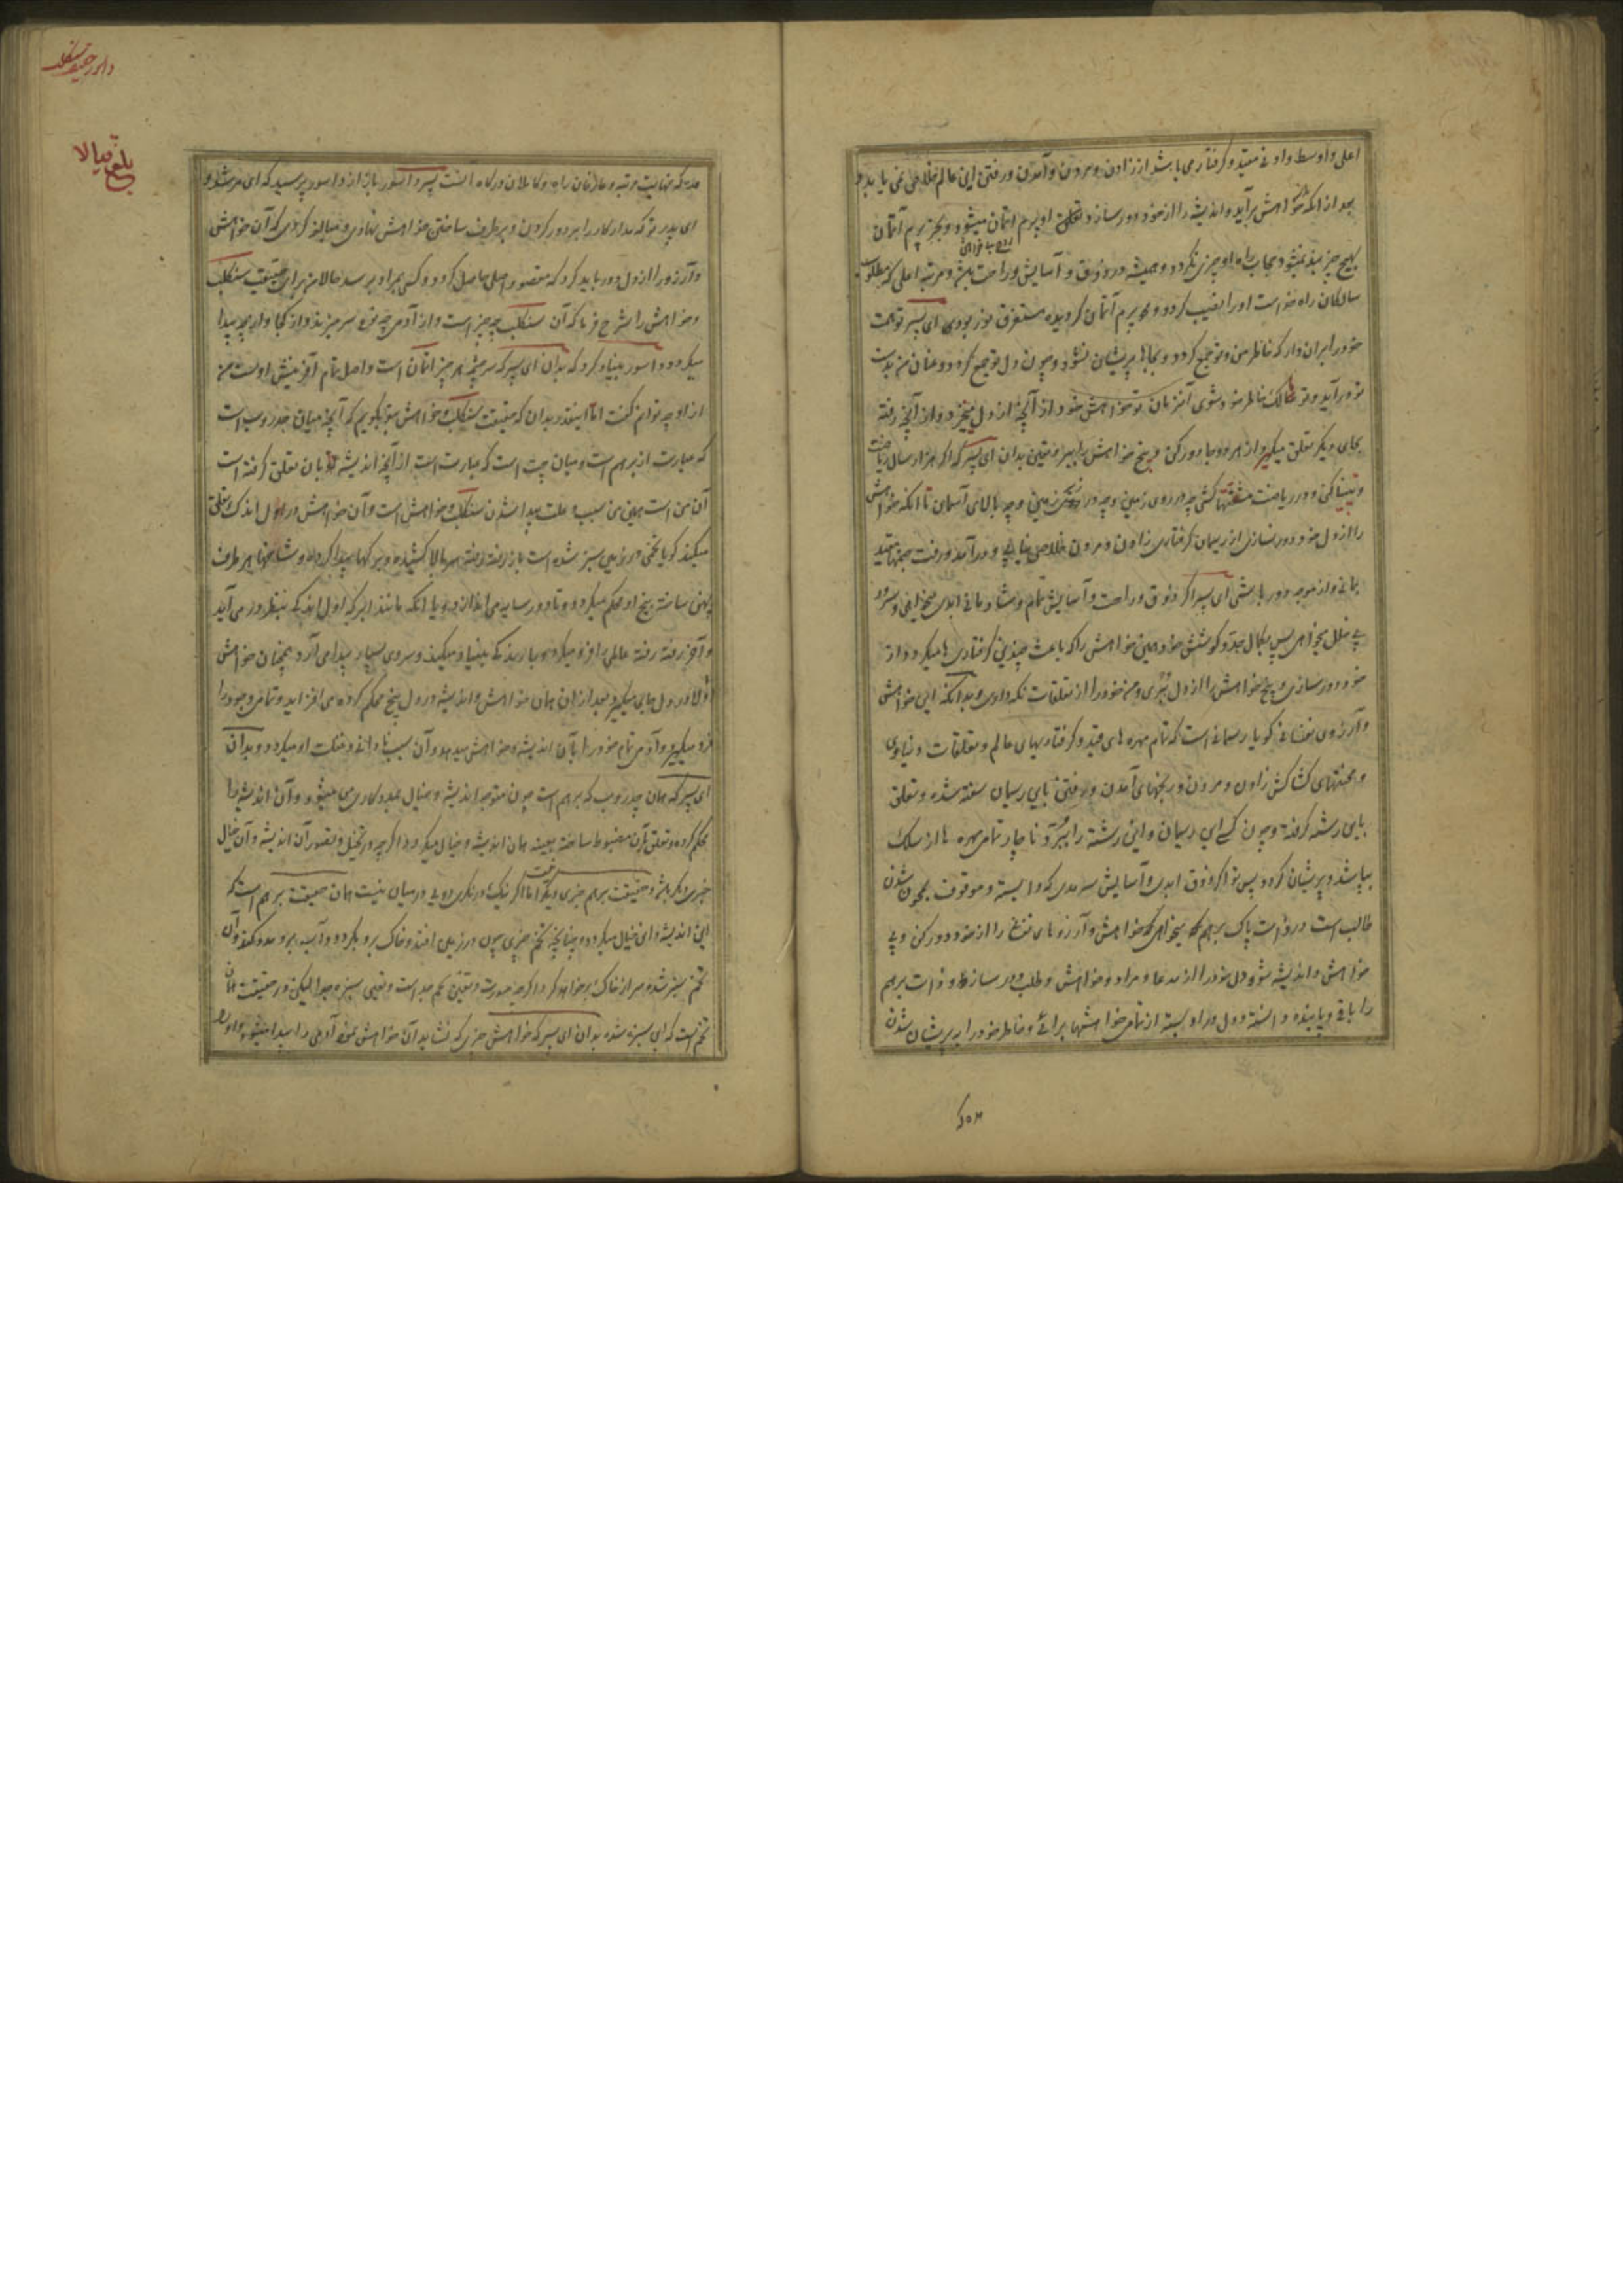 اعلی و اوسط و ادنی مقید و گرفتار می باشد از زادن و مردن و آمدن و رفتن این عالم خلاصی نمی یابد و
بعد از آنکه خواهش برآید و اندیشه را از خود دور سازد او پرم آتمان میشود و بجز پرم آتمان
بهیچ چیز بند نمیشود و حجاب راه او چیزی نگردد و همیشه در ذوق و آسایش و راحت و مرتبه اعلی که مطلوب
سالکان راه خداست او را نصیب گردد و محو پرم آتمان گردیده مستغرق نور بود ای پسر تو همت
خود را بران دار که خاطر من و تو جمع گردد و بجاها پریشان نشود و چون دل تو جمع گردد و عنان من بدست
تو درآید و تو مالک خاطر خود شوی آنزمان تو خواهش خود از آنچه از دل میخیزد و از آنچه رفته
بجای دیگر تعلق میگیرد از هر دو جا دور کن و بیخ خواهش را ببر و یقین بدان ای پسر که اگر هزار سال ریاضت
کنی و در ریاضت مشقتها کشی چه در روی زمین و چه در زیر زمین و چه بالای آسمان تا آنکه خواهش
را از دل خود دور نسازی از ریسمان گرفتاری زادن و مردن خلاصی نیابی و در آمد و رفت جهنمها مقید
بمانی و از موجد دور باشی ای پسر اگر ذوق و راحت و آسایش تمام و شادمانی ابدی میخواهی و سرور
بی خلل بجواهی پس بکمال جد و کوشش خود همین خواهش را که باعث چندین گرفتاری ها میگردد از
خود دور سازی و بیخ خواهش را از دل ببری و من خود را از تعلقات نگهداری و بدانکه این خواهش
و آرزوی نفسانی گویا ریسمانی است که تمام مهره های قید و گرفتاریهای عالم و تعلقات دنیاوی
و محنتهای کشاکش زادن و مردن و رنجهای آمدن و رفتن باین ریسمان سفته شده و تعلق
باین رشته گرفته و چون کسی این ریسمان و این رشته را ببرد ناچار تمام مهره ها از سلک
بپاشد و پریشان گردد پس تو اگر ذوق ابدی و آسایش سرمدی که وابسته و موقوف بمحو شدن
طالب است در ذات پاک برهم میخواهی که خواهش و آرزوهای نفس را از خود دور کن و بی
خواهش و اندیشه شو و دل خود را از مدعا و مراد و خواهش و طلب دور ساز و ذات برهم
را باقی و پاینده دانسته و دل در او بسته از تمام خواهشها برآی و خاطر خود را از پریشان شدن
داسور حقیقت سنکلب
بلغ مقابلا
مده که نهایت مرتبه عارفان راه و کاملان درگاه اینست پسر داسور باز از داسور پرسید که ای مرشد و
ای پدر تو که مدار کار را بر دور کردن و برطرف ساختن خواهش نهادی و مبالغه کردی که آن خواهش
و آرزو را از دل دور باید کرد که مقصود اصلی حاصل گردد و کسی بمراد برسد حالا من برای حقیقت سنکلب
و خواهش را شرح فرما که آن سنکلب چه چیز است و از آدمی چه نوع سر میزند و از کجا و از چه پیدا
میگردد داسور بنیاد کرد که بدان ای پسر که سرچشمه هر چیز آتمان است و اصل تمام آفرینش اوست من
از او چه توانم گفت اما اینقدر بدان که حقیقت سنکلب و خواهش بتو بگویم که آنچه میان جدروپ است
که عبارت از برهم است و میان چت است که عبارت است از آنچه اندیشه بآن تعلق گرفته است
آن من است همین من سبب و علت پیدا شدن سنکلب و خواهش است و آن خواهش در اول اندک تعلق
میکند گویا تخمی در زمین سبز شده است باز رفته رفته سر بالا کشیده و برگها پیدا کرده و شاخها بهر طرف
پهن ساخته بیخ او محکم میگردد و تا دور سایه می اندازد یا آنکه مانند ابر که اول اندک بنظر در می آید
و آخر رفته رفته عالمی را فرو میگیرد و باریدن بنیاد میکند و سردی بسیار پیدا می آرد همچنان خواهش
اول در دل جای میگیرد بعد از آن همان خواهش و اندیشه در دل بیخ محکم کرده می افزاید و تمام وجود را
فرو میگیرد و آدمی تمام خود را بآن اندیشه و خواهش میدهد و آن سبب نادانی و غفلت او میگردد و بدان
ای پسر که همان چدروپ که برهم است چون متوجه اندیشه و خیال عمل و کاری می شود و آن اندیشه را
محکم کرده و تعلق بآن مضبوط ساخته بعینه همان اندیشه و خیال میگردد اگرچه در تخیل و تصور آن اندیشه و آن خیال
چیزی دیگر باشد و حقیقت برهم چیزی دیگر اما اگر نیک در نگری دوئی در میان نیست همان حقیقت برهم است که
این اندیشه و این خیال میگردد و چنانچه تخم چیزی چون در زمین افتد و خاک برو بگردد و آب برو مدد کند آن
تخم سبز شده سر از خاک بر خواهد کرد اگرچه صورت و تعین تخم جداست و تعین سبزه جدا لیکن در حقیقت همان
تخم است که این سبزه شده بدان ای پسر که خواهش چیزی که نشاید آن خواهش نمود آدمی را پیدا میشود و او را